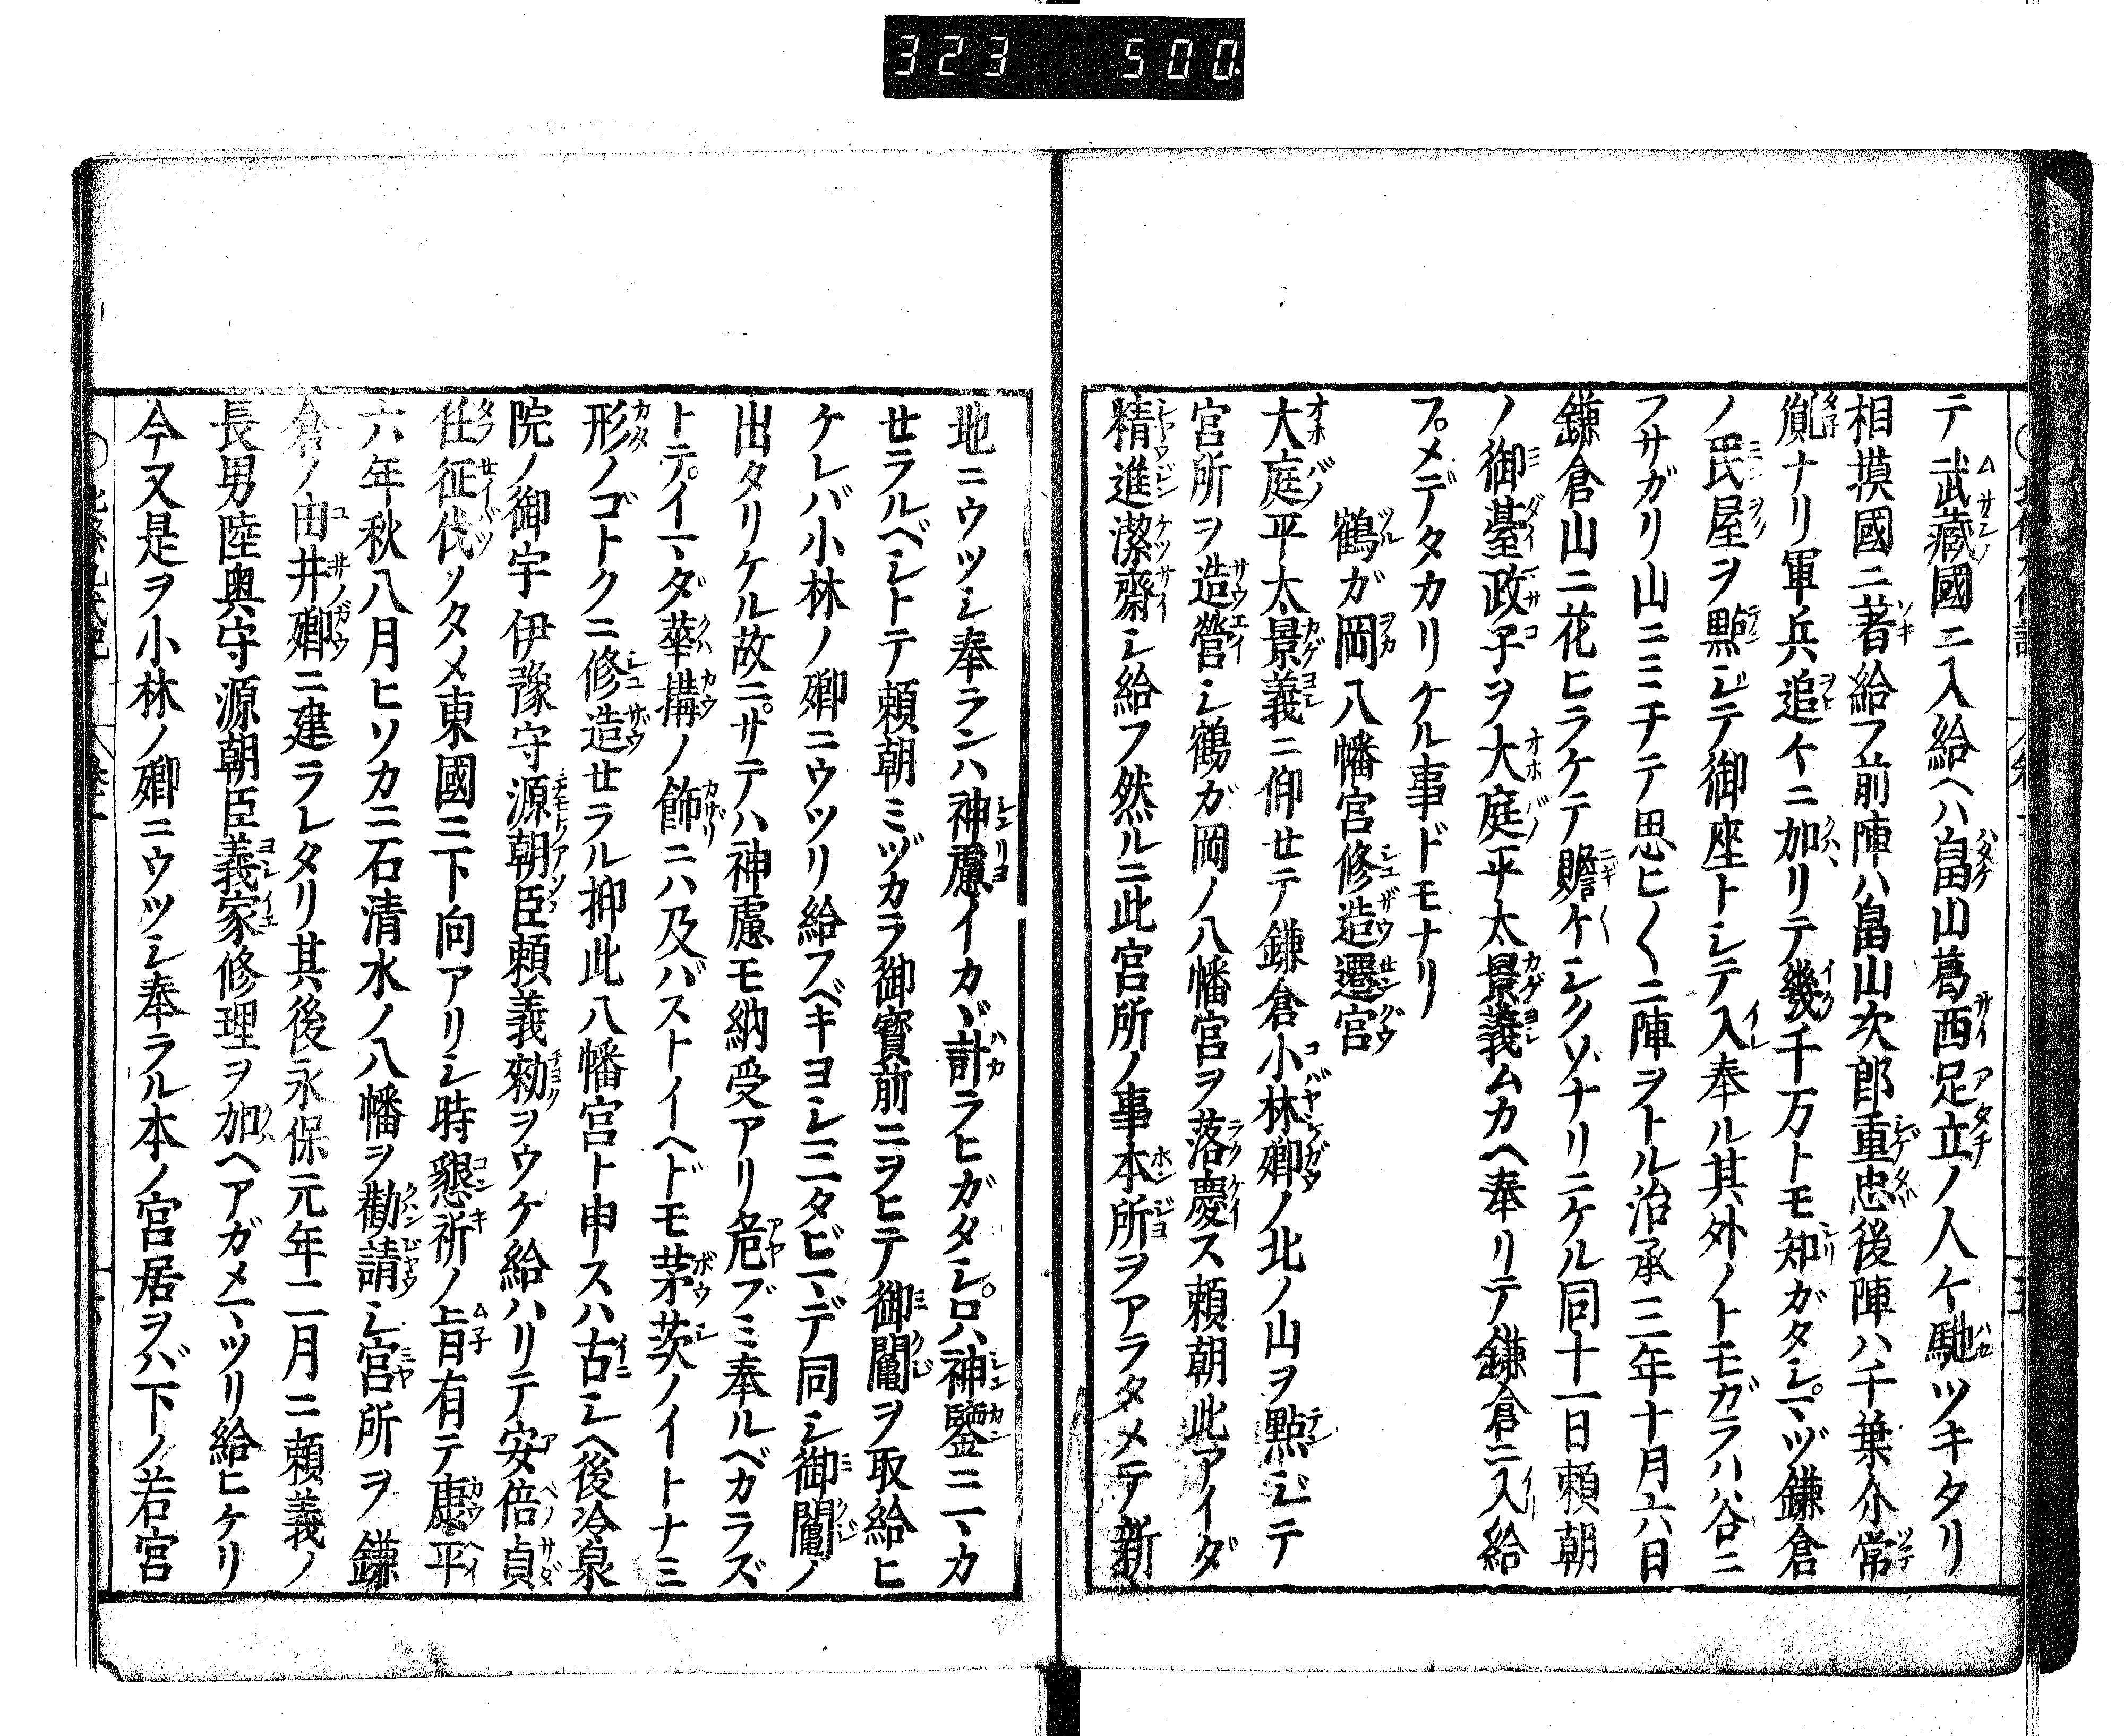 323 500
テ武藏國ニ入給ヘハ畠山葛西足立ノ人〻馳ツキタリ
相摸國ニ著給フ前陣ハ畠山次郎重忠後陣ハ千葉介常
胤ナリ軍兵追〻ニ加リテ幾千万トモ知ガタシマヅ鎌倉
ノ民屋ヲ點ジテ御座トシテ入奉ル其外ノトモガラハ谷ニ
フサガリ山ニミチテ思ヒ〱ニ陣ヲトル治承三年十月六日
鎌倉山ニ花ヒラケテ贍〻シクソナリニケル同十一日頼朝
ノ御臺政子ヲ大庭平太景義ムカヘ奉リテ鎌倉ニ入給
フメデタカリケル事ドモナリ
鶴ガ岡八幡宮修造遷宮
大庭平太景義ニ仰セテ鎌倉小林郷ノ北ノ山ヲ點ジテ
宮所ヲ造營シ鶴ガ岡ノ八幡宮ヲ落慶ス頼朝此アイダ
精進潔齋シ給フ然ルニ此宮所ノ事本所ヲアラタメテ新
地ニウツシ奉ランハ神慮イカヾ計ラヒガタシ只神鑒ニマカ
セラルベシトテ頼朝ミヅカラ御寳前ニヲヒテ御鬮ヲ取給ヒ
ケレバ小林ノ郷ニウツリ給スベキヨシ三タビマデ同シ御鬮ノ
出タリケル故ニサテハ神慮モ納受アリ危ブミ奉ルベカラズ
トテイマダ華構ノ飾ニハ及バストイヘドモ茅茨ノイトナミ
形ノゴトクニ修造セラル抑此八幡宮ト申スハ古シヘ後冷泉
院ノ御宇伊豫守源朝臣頼義勅ヲウケ給ハリテ安倍貞
任征伐ノタメ東國ニ下向アリシ時懇祈ノ旨有テ康平
六年秋八月ヒソカニ石清水ノ八幡ヲ勸請シ宮所ヲ鎌
倉ノ由井郷ニ建ラレタリ其後永保元年二月ニ頼義ノ
長男陸奥守源朝臣義家修理ヲ加ヘアガメマツリ給ヒケリ
今又是ヲ小林ノ郷ニウツシ奉ラル本ノ宮居ヲバ下ノ若宮